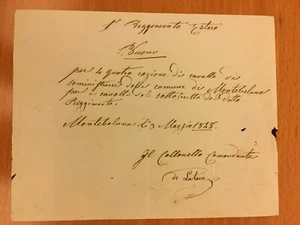 1º Reggimento Estero
Buono
per 4 quatro razione di cavallo da
soministrarsi dalla comune di Montebelluna
per i cavalli del sottoscritto del detto
Reggimento.
Montebelluna li 9 1848.
Il Collonello Comandante
de Latour